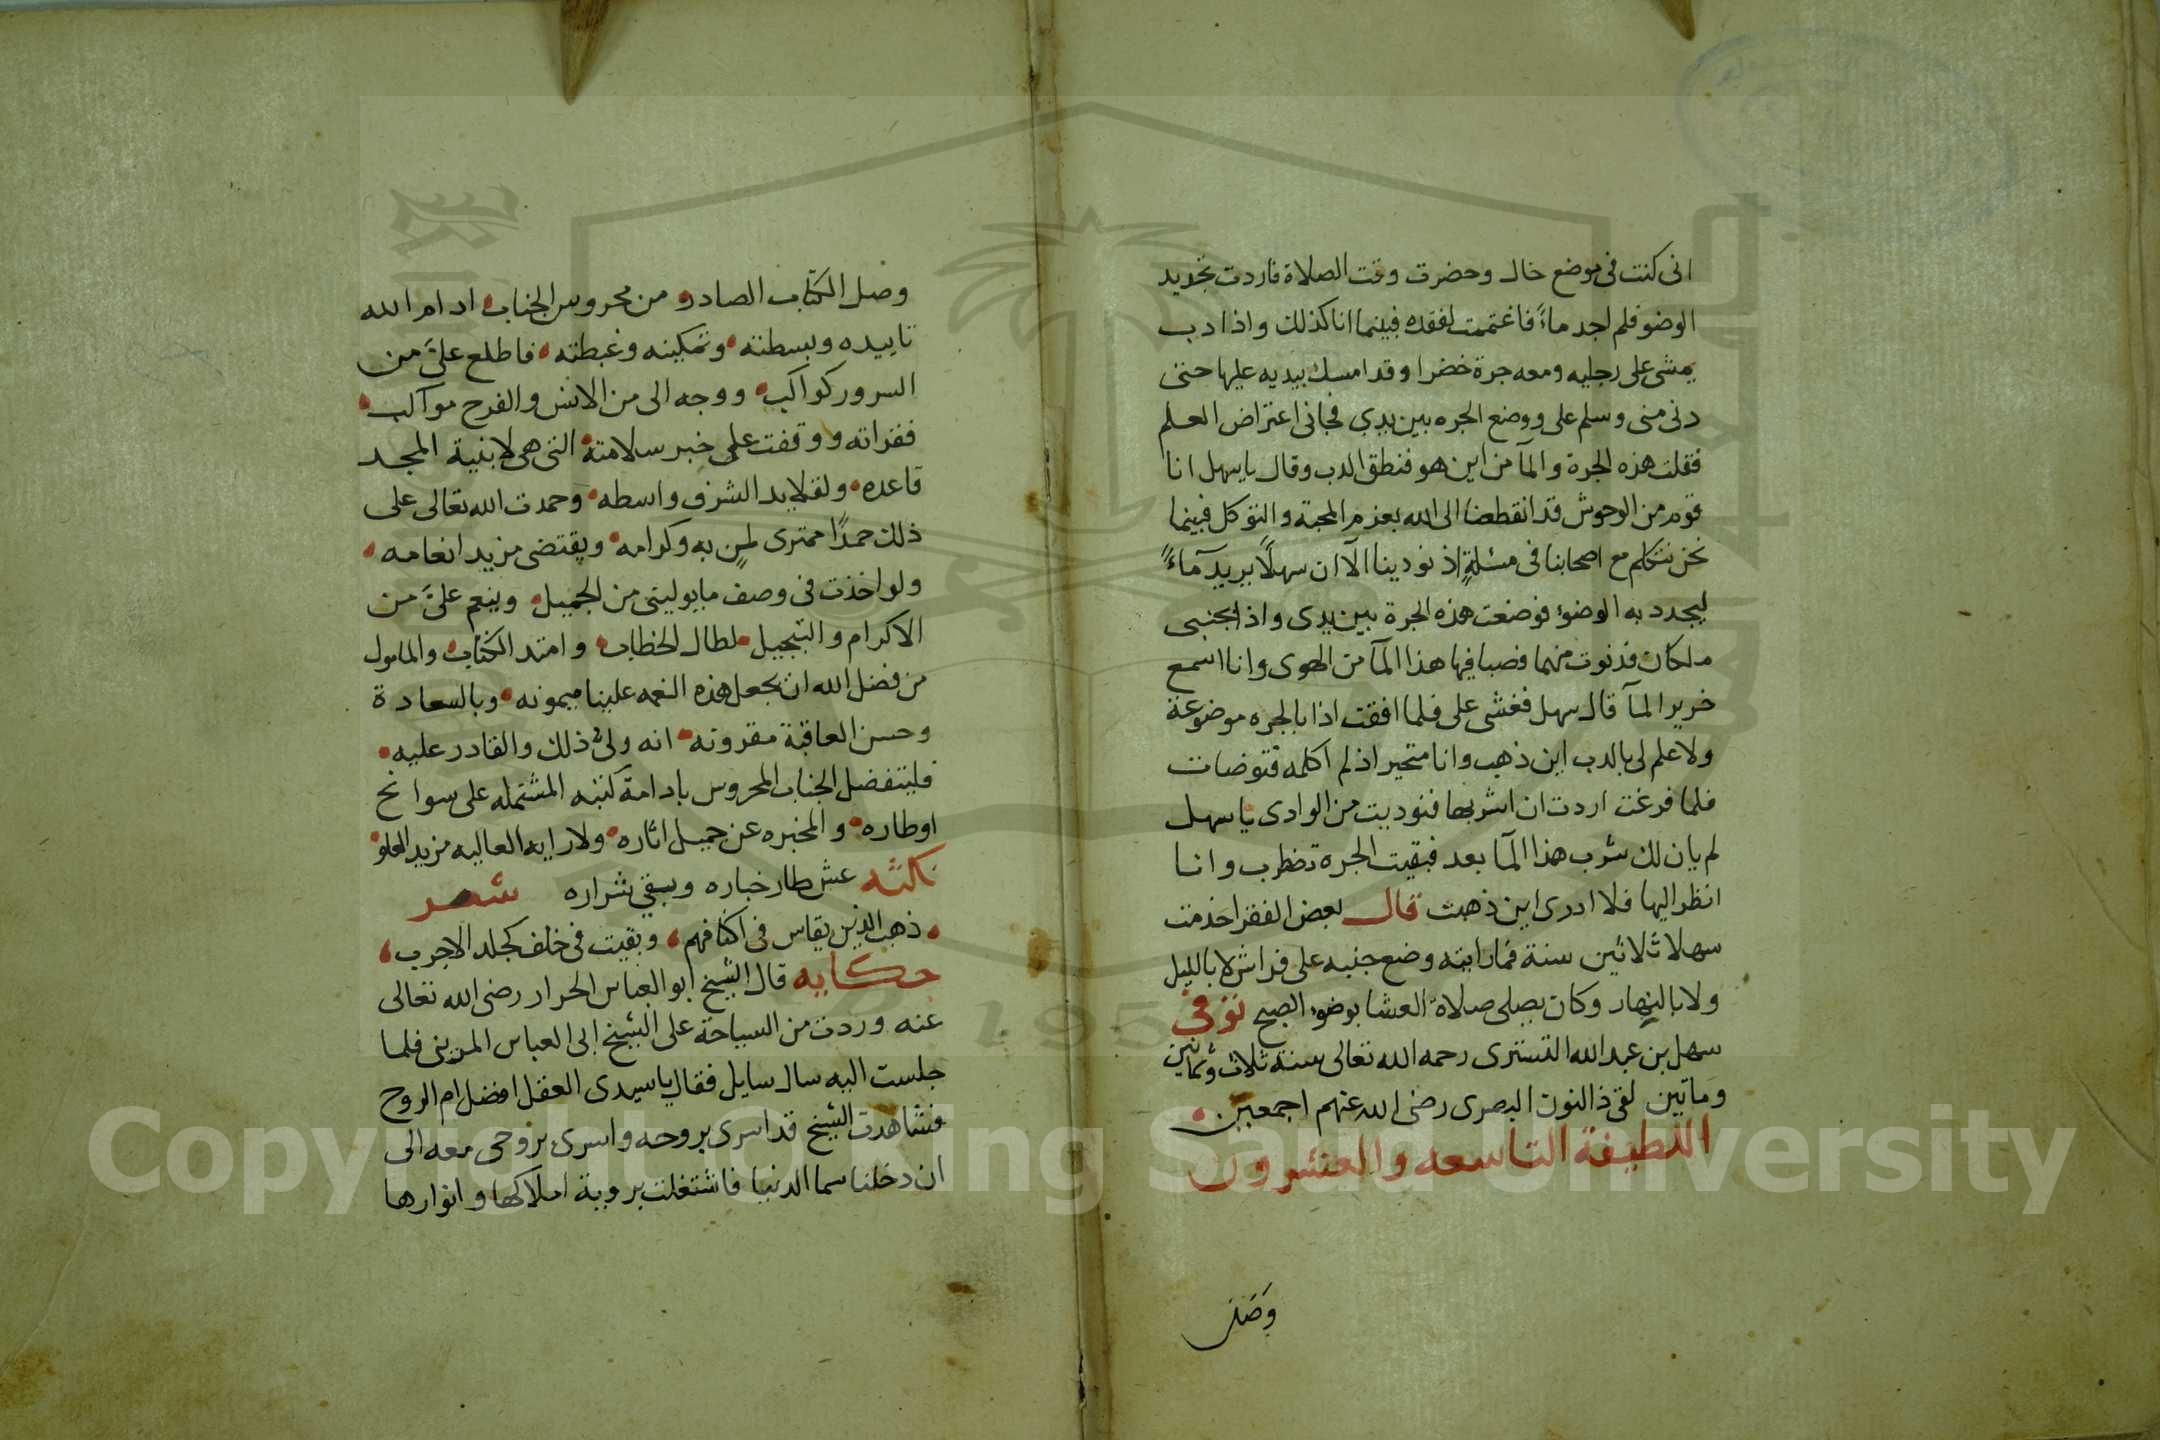 انى كنت فى موضع خال وحضرت وقت الصلاة فاردت تجديد
الوضو فلم اجد ماءً فاغتممت لفقده فبينما انا كذلك واذا دب
يمشى على رجليه ومعه جرة خضرا وقد امسك بيديه عليها حتى
دنى منى وسلم على ووضع الجره بين يدى فجانى اعتراض العلم
فقلت هذه الجرة والمآ من اين هو فنطق الدب وقال ياسهل انا
قوم من الوحوش قد انقطعنا الى الله بعزم المحبة والتوكل فبينما
نحن نتكلم مع اصحابنا فى مسئلةٍ اذ نودينا الآ ان سهلاً يريد مآءً
ليجدد به الوضوء فوضعت هذه الجرة بين يدى واذا بجنبى
ملكان فدنوت منهما فصبا فيها هذا المآ من الهوى وانا اسمع
خرير المآ قال سهل فغشى على فلما افقت اذا بالجره موضوعة
ولا علم لى بالدب اين ذهب وانا متحير اذ لم اكلمه فتوضات
فلما فرغت اردت ان اشربها فنوديت من الوادى يا سهل
لم يان لك شرب هذا المآ بعد فبقيت الجرة تضطرب وانا
انظر اليها فلا ادرى اين ذهبت قال بعض الفقرا خدمت
سهلا ثلاثين سنة فما رايته وضع جنبه على فراش لا بالليل
ولا بالنهار وكان يصلى صلاة العشا بوضوء الصبح توفى
سهل بن عبد الله التسترى رحمه الله تعالى سنة ثلاث وثمانين
وماتين لقى ذا النون البصرى رضى الله عنهم اجمعين
اللطيفة التاسعه والعشرون
وَصَل
وصل الكتاب الصادر من محروس الجناب ادام الله
تاييده وبسطته وتمكينه وغبطته فاطلع علىَّ من
السرور كواكب ووجه الى من الانس والفرح مواكب
فقراته ووقفت على خبر سلامتة التى هى لابنية المجد
قاعده ولقلايد الشرف واسطه وحمدت الله تعالى على
ذلك حمدًا ممترى لمن به وكرامه ويقتضى مزيد انعامه
ولو اخذت فى وصف ما يولينى من الجميل وينعم علىَّ من
الاكرام والتبجيل لطال الخطاب وامتد الكتاب والمامول
من فضل الله ان يجعل هذه النعمه علينا ميمونه وبالسعادة
وحسن العاقبة مقرونه انه ولىُّ ذلك والقادر عليه
فليتفضل الجناب المحروس بادامة كتبه المشتمله على سوانح
اوطاره والمخبره عن جميل اثاره ولارايه العاليه مزيد العلو
نكتة عش طار خباره وبقى شراره شعر
ذهب الذين يقاس فى اكنافهم وبقيت فى خلف كجلد الاجرب
حكايه قال الشيخ ابو العباس الحرار رضى الله تعالى
عنه وردت من السياحة على الشيخ ابى العباس المرينى فلما
جلست اليه سال سايل فقال ياسيدى العقل افضل ام الروح
فشاهدت الشيخ قد اسرى بروحه واسرى بروحى معه الى
ان دخلنا سما الدنيا فاشتغلت بروية املاكها وانوارها
Copyright © King Saud University